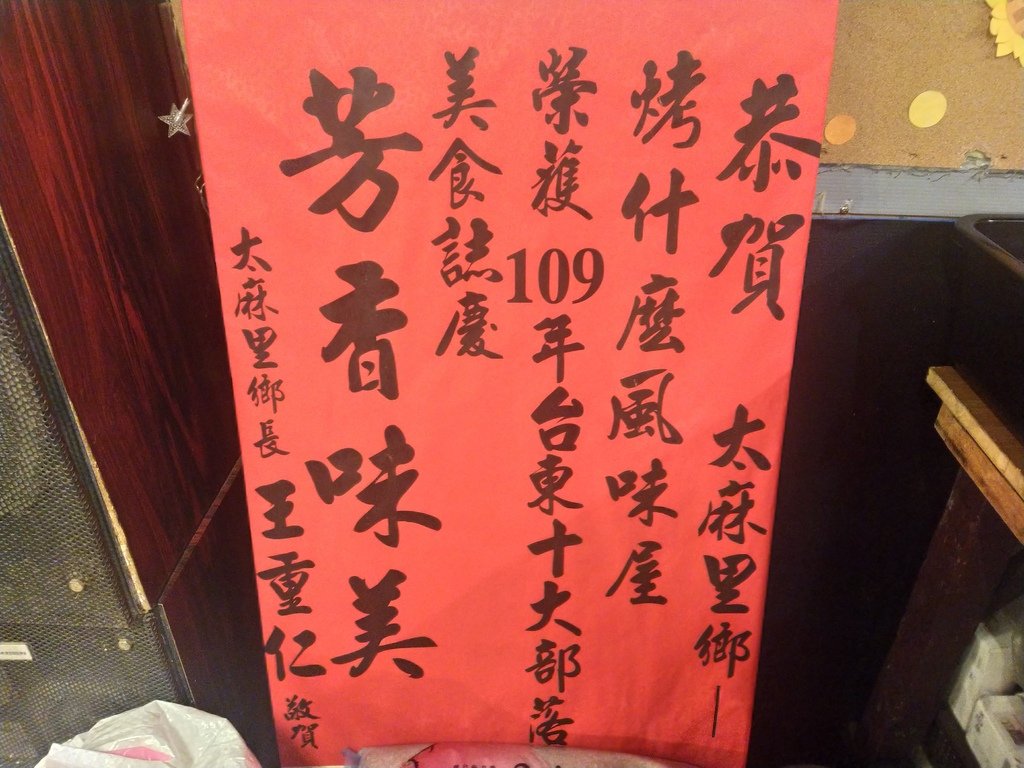 恭賀 太麻里鄉—
烤什麼風味屋
榮獲109年台東十大部落
美食誌慶
芳香味美
太麻里鄉長 王重仁 敬賀